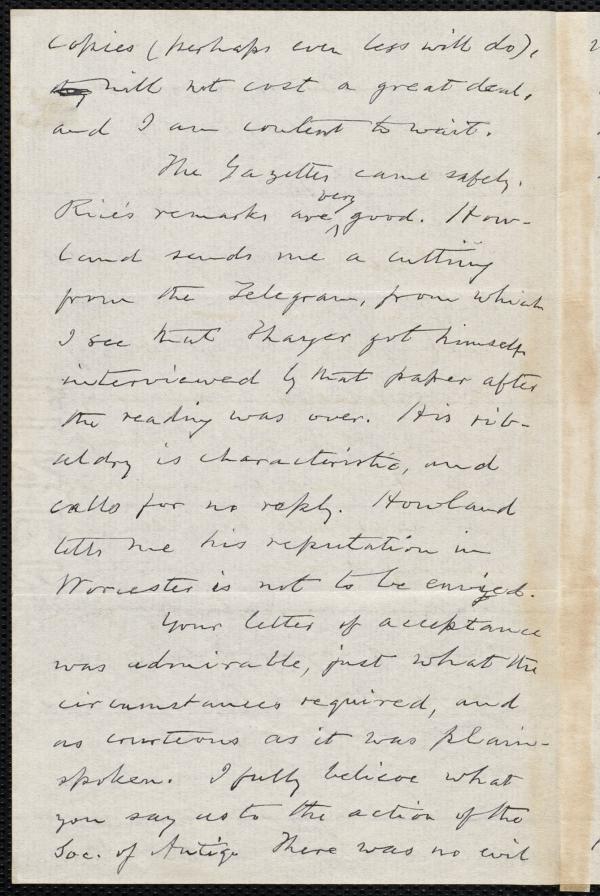 copies (perhaps even less will do),
will not cost a great deal,
and I am content to wait.
The Gazettes came safely.
Rice's remarks are very good. How-
land sends me a cutting
from the Telegram, from which
I see that Thayer got himself
interviewed by that paper after
the reading was over. His rib-
aldry is characteristic, and
calls for no reply. Howland
tells me his reputation in
Worcester is not to be envied.
Your letter of acceptance
was admirable, just what the
circumstances required, and
as courteous as it was plain-
spoken. I fully believe what
you say as to the action of the
Soc. of Antiq. There was no evil